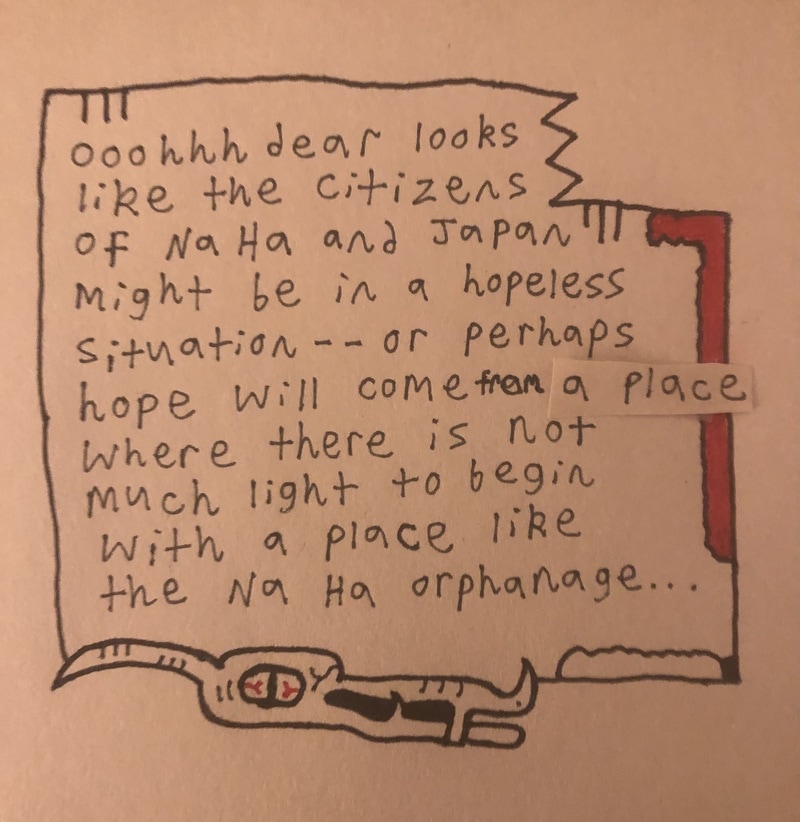 ooohhh dear looks
like the citizens
of Na Ha and Japan
might be in a hopeless
situation -- or perhaps
hope will come from a place
where there is not
much light to begin
with a place like
the Na Ha orphanage...